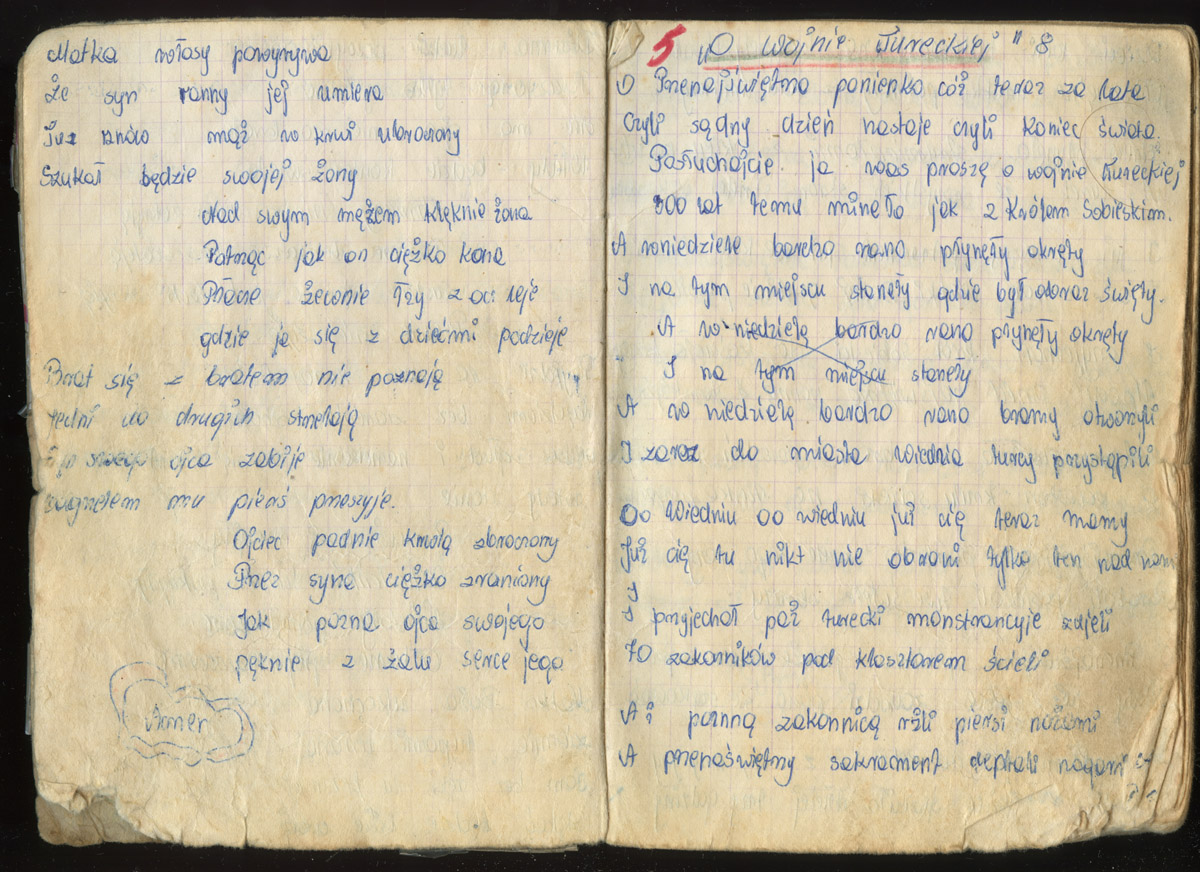 Matka włosy powyrywa
Że syn ranny jej umiera
Już znów mąż we krwi ubroczony
Szukał będzie swojej żony
Nad swym mężem klęknie żona
Patrząc jak on ciężko kona
Płacze żewnie łzy z oci leje
gdzie ja się z dziećmi podzieje
Brat się z bratem nie poznają
jedni do drugich strzelają
Syn swego ojca zabije
bagnetem mu pierś przeszyje.
Ojciec padnie krwią zbroczony
Przez syna ciężko zraniony
Jak pozna ojca swojego
pęknie z żalu serce jego
Amen
5 „O wojnie Tureckiej" 8
O Przenajświętrza panienko cóż teraz za lata
Czyli sądny dzień nastaje czyli koniec świata.
Posłuchajcie ja was proszę o wojnie Tureckiej
300 lat temu mineło jak z Królem Sobieskim.
A wniedziele bardzo rano płynęły okręty
I na tym miejscu staneły gdzie był obraz święty.
A w niedzielę bardzo rano płynęły okręty
I na tym miejscu staneły
A w niedzielę bardzo rano bramy otworzyli
I zaraz do miasta Wiednia turcy przystąpili
Oo Wiedniu Oo wiedniu już cię teraz mamy
Już cię tu nikt nie obroni tylko ten nad nami
I
I przyjechał paź turecki monstrancyje zdjeli
70 zakonników pod klasztorem ścieli
A i panną zakonnicą rżli piersi nożami
A przenaświętrzy sakrament deptali nogami